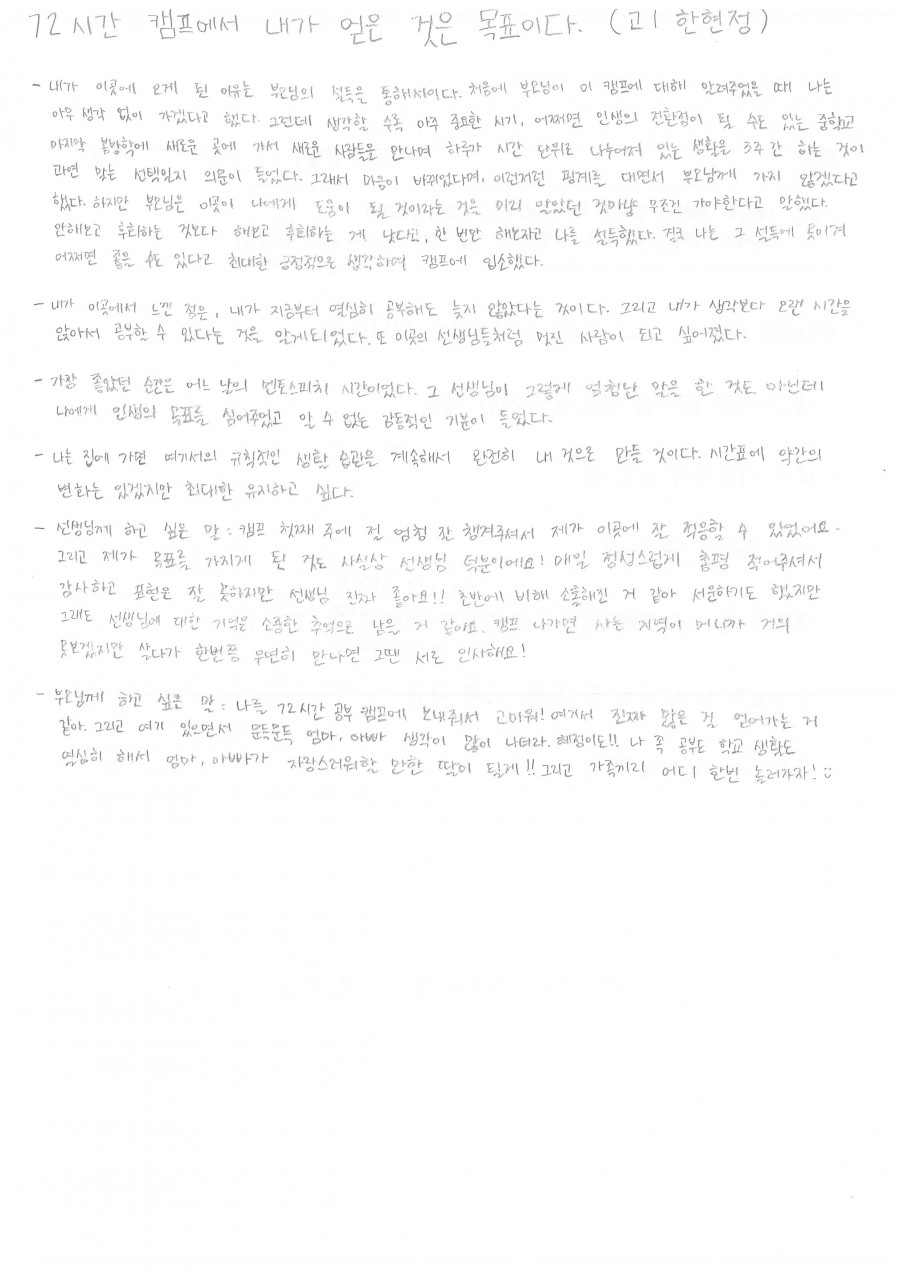 72시간 캠프에서 내가 얻은 것은 목표이다. (고1 한현정)
- 내가 이곳에 오게 된 이유는 부모님의 설득을 통해서이다. 처음에 부모님이 이 캠프에 대해 알려주었을 때 나는
아무 생각 없이 가겠다고 했다. 그런데 생각할 수록 아주 중요한 시기, 어쩌면 인생의 전환점이 될 수도 있는 중학교
마지막 봄방학에 새로운 곳에 가서 새로운 사람들을 만나며 하루가 시간 단위로 나누어져 있는 생활을 3주간 하는 것이
과연 맞는 선택일지 의문이 들었다. 그래서 마음이 바뀌었다며, 이런저런 핑계를 대면서 부모님께 가지 않겠다고
했다. 하지만 부모님은 이곳이 나에게 도움이 될 것이라는 것을 미리 알았던 것마냥 무조건 가야한다고 말했다.
안해보고 후회하는 것보다 해보고 후회하는 게 낫다고, 한 번만 해보자고 나를 설득했다. 결국 나는 그 설득에 못이겨
어쩌면 좋을 수도 있다고 최대한 긍정적으로 생각하며 캠프에 입소했다.
- 내가 이곳에서 느낀 점은, 내가 지금부터 열심히 공부해도 늦지 않았다는 것이다. 그리고 내가 생각보다 오랜 시간을
앉아서 공부할 수 있다는 것을 알게되었다. 또 이곳의 선생님들처럼 멋진 사람이 되고 싶어졌다.
- 가장 좋았던 순간은 어느 날의 멘토스피치 시간이었다. 그 선생님이 그렇게 엄청난 말을 한 것도 아닌데
나에게 인생의 목표를 심어주었고 알 수 없는 감동적인 기분이 들었다.
- 나는 집에 가면 여기서의 규칙적인 생활 습관을 계속해서 완전히 내 것으로 만들 것이다. 시간표에 약간의
변화는 있겠지만 최대한 유지하고 싶다.
- 선생님께 하고 싶은 말 : 캠프 첫째 주에 절 엄청 잘 챙겨주셔서 제가 이곳에 잘 적응할 수 있었어요.
그리고 제가 목표를 가지게 된 것도 사실상 선생님 덕분이에요! 매일 정성스럽게 총평 적어주셔서
감사하고 표현은 잘 못하지만 선생님 진짜 좋아요!! 초반에 비해 소홀해진 거 같아 서운하기도 했지만
그래도 선생님에 대한 기억은 소중한 추억으로 남을 거 같아요. 캠프 나가면 사는 지역이 머니까 거의
못보겠지만 살다가 한번쯤 우연히 만나면 그땐 서로 인사해요!
- 부모님께 하고 싶은 말 : 나를 72시간 공부 캠프에 보내줘서 고마워! 여기서 진짜 많은 걸 얻어가는 거
같아. 그리고 여기 있으면서 문득문득 엄마, 아빠 생각이 많이 나더라. 혜정이도!! 나 쭉 공부도 학교 생활도
열심히 해서 엄마, 아빠가 자랑스러워할 만한 딸이 될게!! 그리고 가족끼리 어디 한번 놀러가자! :)